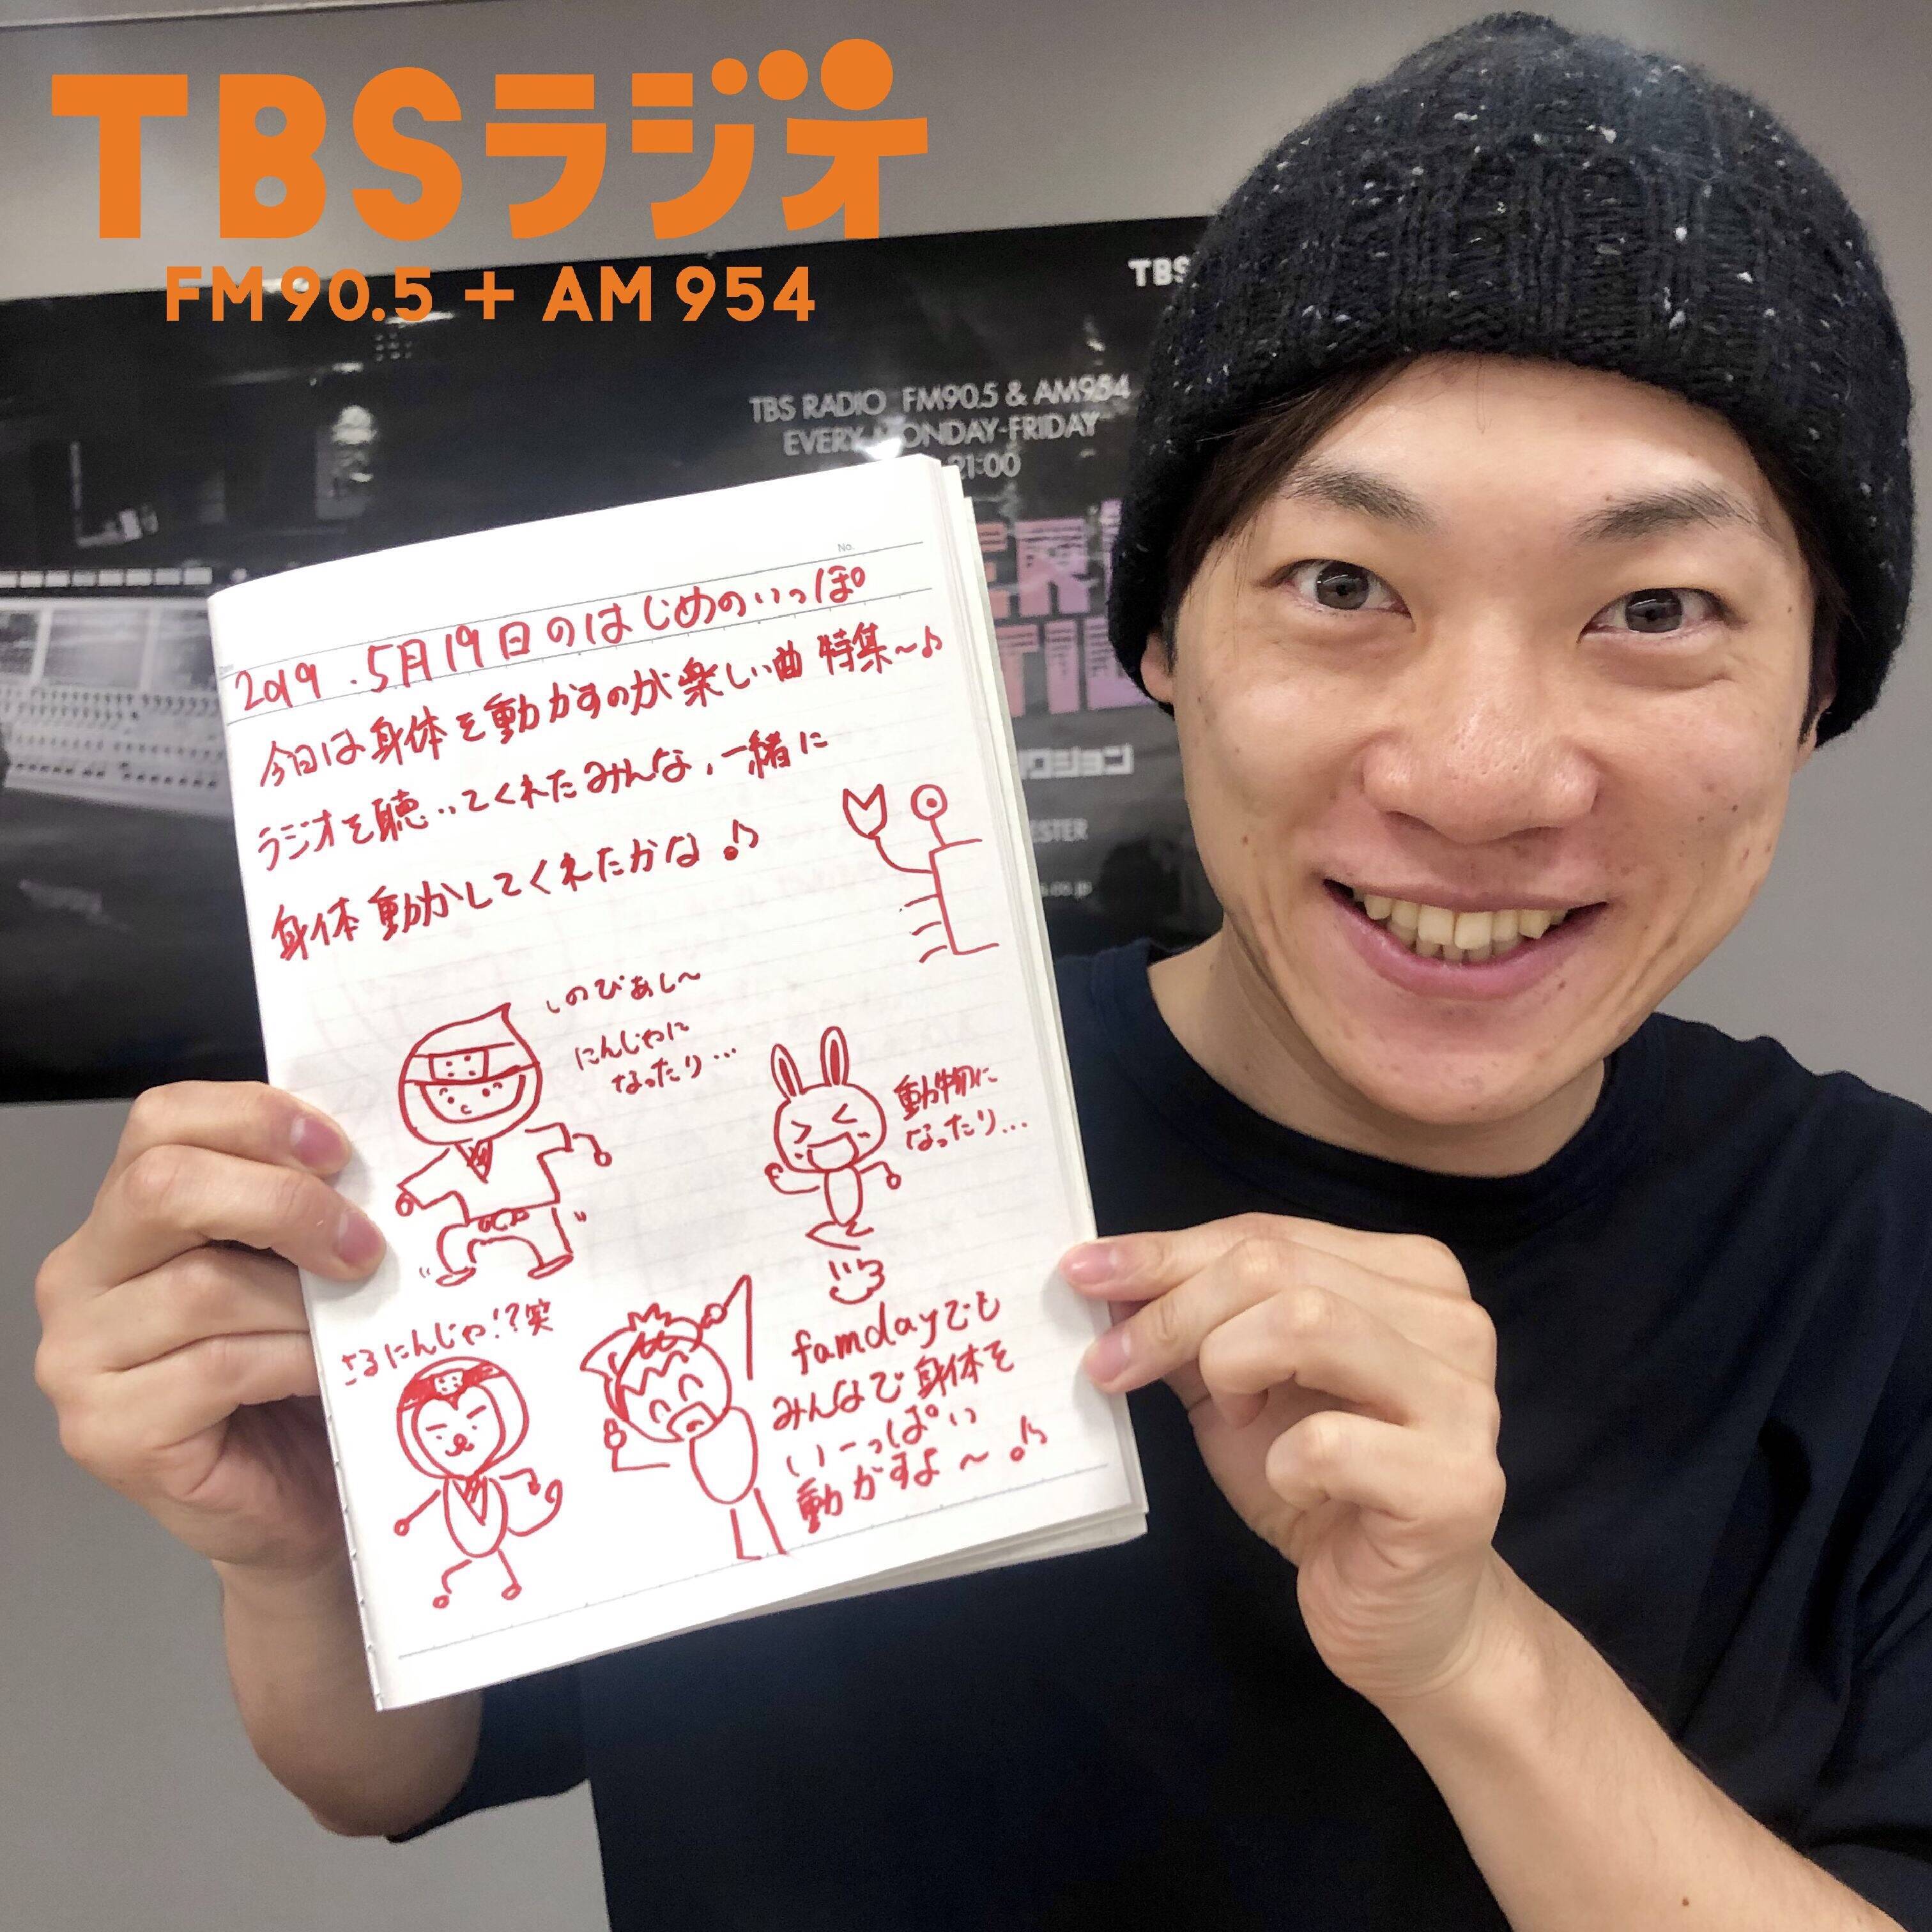 TBSラジオ
FM90.5 + AM954
TBS
TBS RADIO FM90.5 & AM954
EVERY MONDAY-FRIDAY
21:00
クション
No.
2019.5月19日のはじめのいっぽ
今日は身体を動かすのが楽しい曲特集〜♪
ラジオを聴いてくれたみんな、一緒に
身体動かしてくれたかな♪
しのびあし〜
にんじゃに
なったり…
動物に
なったり…
さるにんじゃ!?笑
famdayでも
みんなで身体を
いーっぱい
動かすよ〜♪